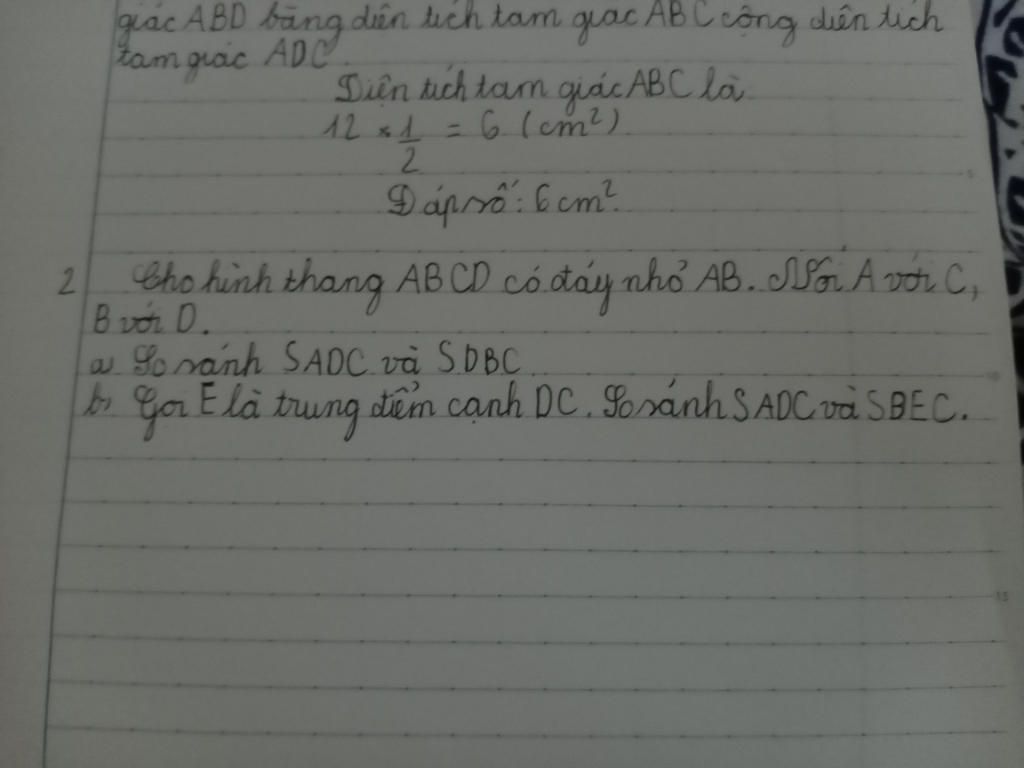 giác ABD bằng diện tích tam giác ABC cộng diện tích
tam giác ADC.
Diện tích tam giác ABC là
12 × 1/2 = 6 (cm²)
Đáp số: 6 cm².
2 Cho hình thang ABCD có đáy nhỏ AB. Nối A với C,
B với D.
a, So sánh SADC và SDBC
b, Gọi E là trung điểm cạnh DC. So sánh SADC và SBEC.